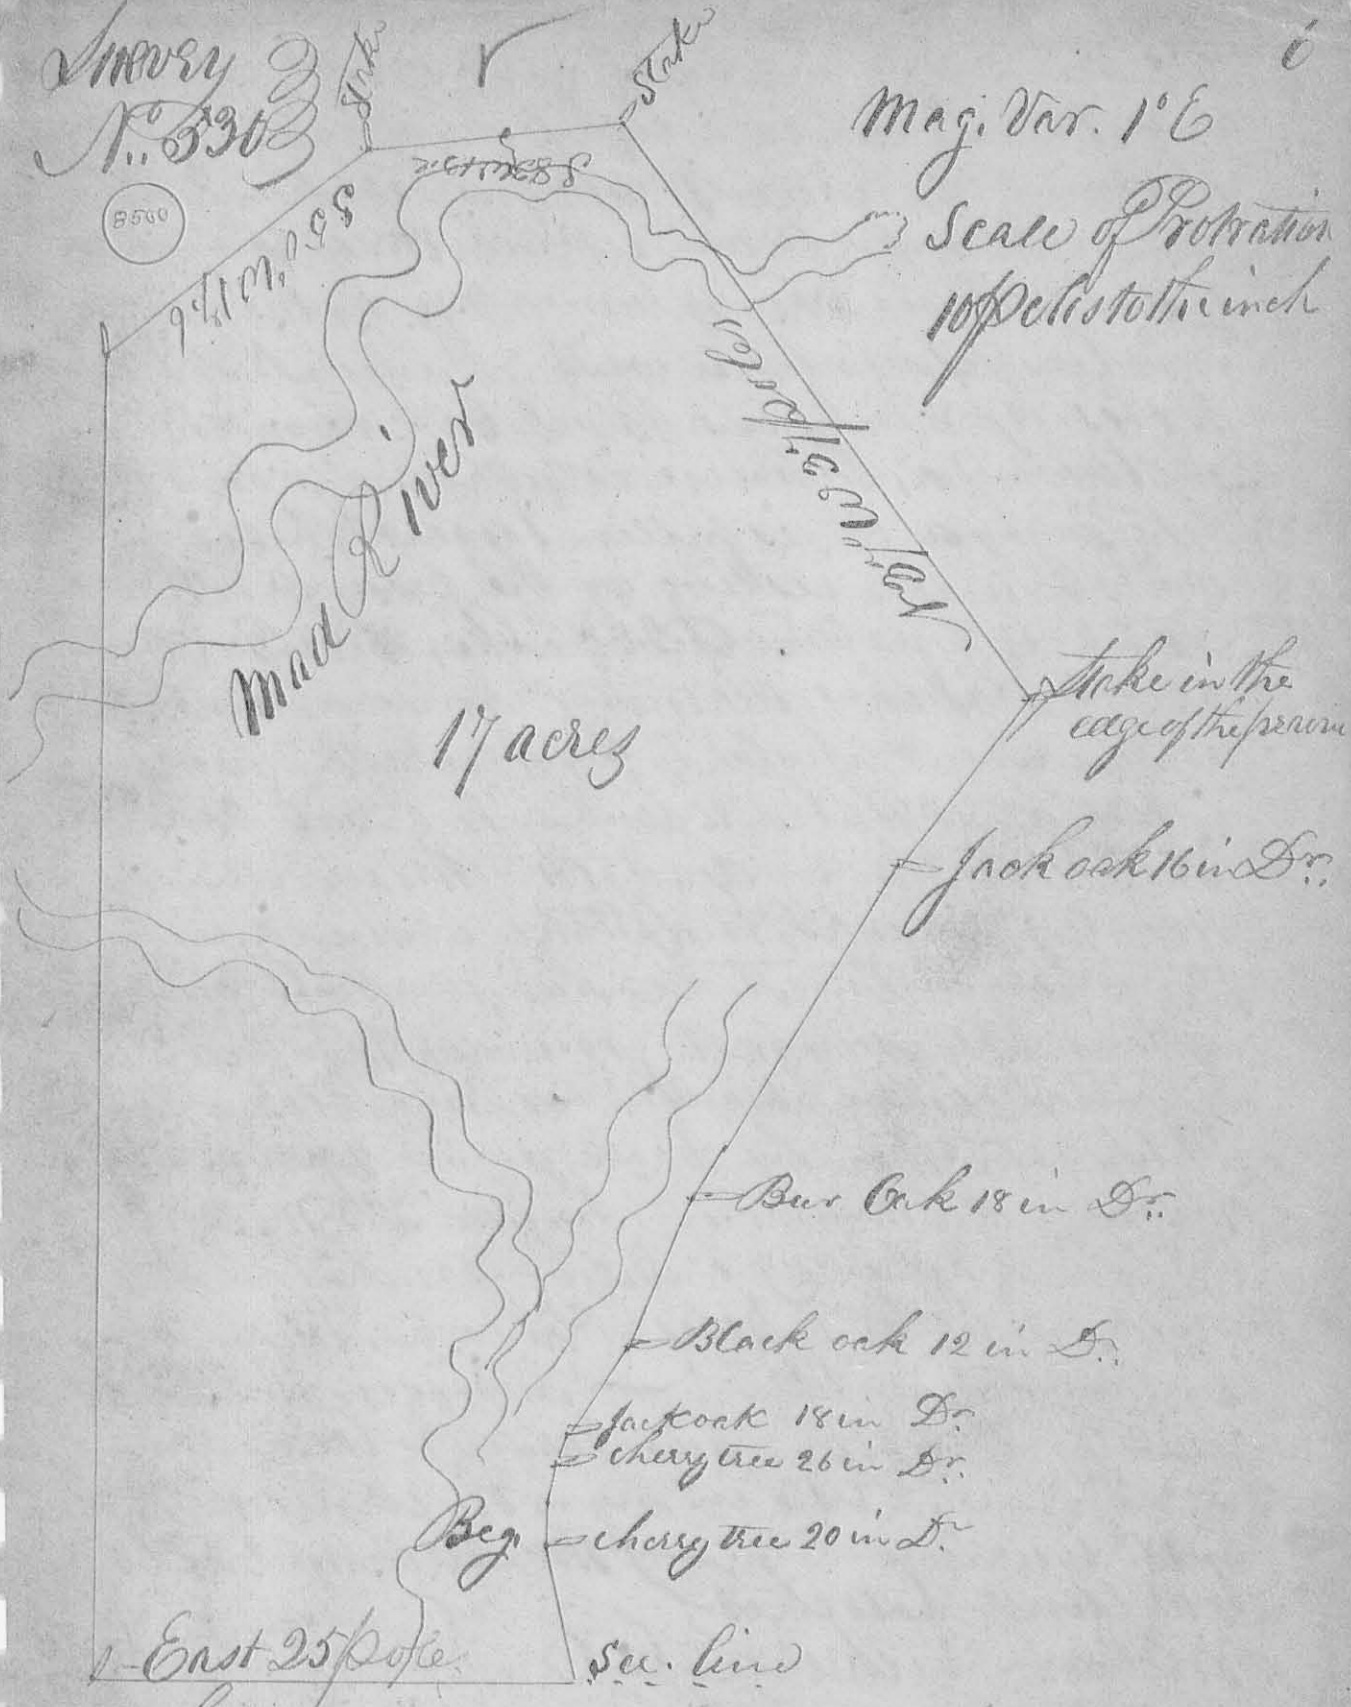 Survey
No. 530
8500
6
Stake
Stake
Mag. Var. 1° E
Scale of Protration
10 poles to the inch
Mad River
17 acres
Stake in the
edge of the
Jack oak 16 in Dr.
Bur Oak 18 in Dr.
Black oak 12 in D.
Jack oak 18 in Dr.
cherry tree 26 in Dr.
Beg.
cherry tree 20 in Dr
East 25 pole
Sec. line